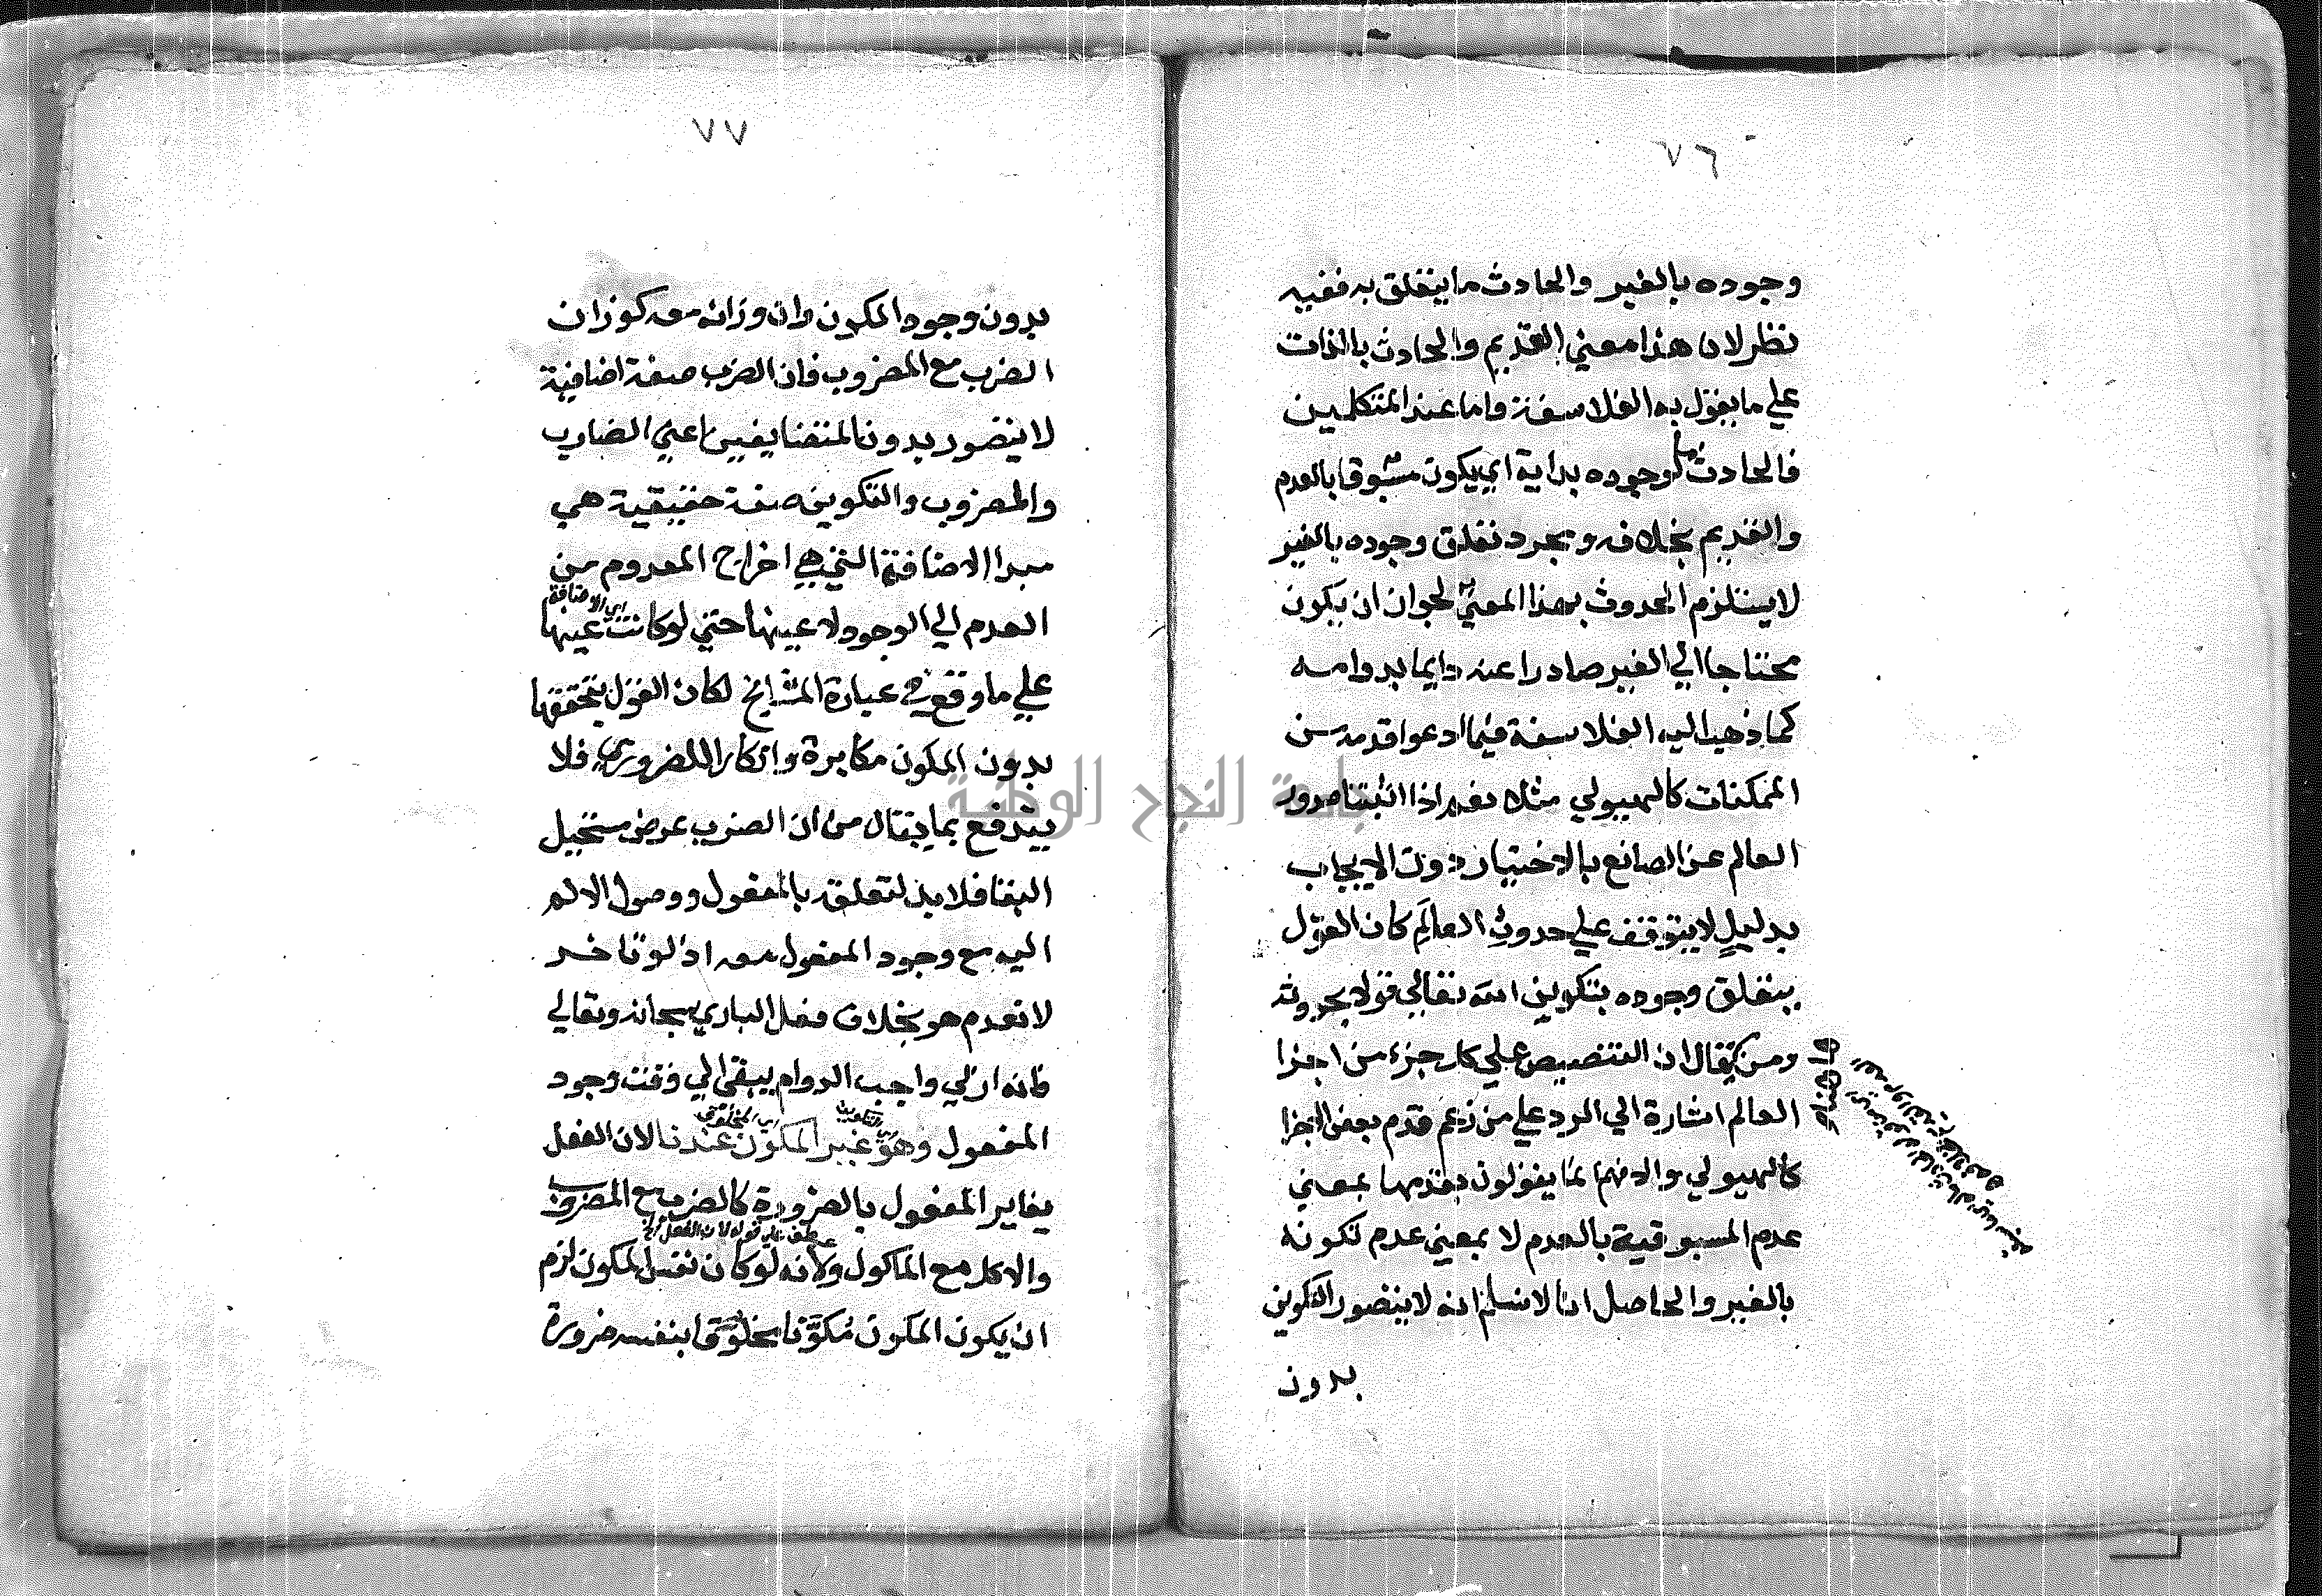 ٧٦
وجوده بالغير والحادث ما يتعلق به ففيه
نظر لان هذا معني القديم والحادث بالذات
علي ما يقول به الفلاسفة واما عند المتكلمين
فالحادث ما لوجوده بداية اي يكون مسبوقا بالعدم
والقديم بخلافه ومجرد تعلق وجوده بالغير
لا يستلزم الحدوث بهذا المعني لجواز ان يكون
محتاجا الي الغير صادرا عنه دايما بدوامه
كما ذهب اليه الفلاسفة فيما ادعوا قدمه من
الممكنات كالهيولي مثلا نعم اذا اثبتنا صدور
العالم عن الصانع بالاختيار دون الايجاب
بدليل لا يتوقف علي حدوث العالم كان القول
بتعلق وجوده بتكوين الله تعالي قولا بحدوثه
ومن يقال ان التنصيص علي كل جزء من اجزا
العالم اشارة الي الرد علي من زعم قدم بعض الاجزا
كالهيولي والا فهم انما يقولون بقدمها بمعني
عدم المسبوقية بالعدم لا بمعني عدم تكونه
بالغير والحاصل انا لا نسلم انه لا يتصور التكوين
بدون
٧٧
بدون وجود المكون وان وزانه معه كوزان
الضرب مع المضروب فان الضرب صفة اضافية
لا يتصور بدون المتضايفين اعني الضارب
والمضروب والتكوين صفة حقيقية هي
مبدا الاضافة التي هي اخراج المعدوم من
اي الاضافة
العدم الي الوجود لا عينها حتي لو كانت عينها
علي ما وقع في عبارة المشايخ لكان القول بتحققها
بدون المكون مكابرة وانكارا للضروري فلا
يندفع بما يقال من ان الضرب عرض مستحيل
البقا فلا بد لتعلقه بالمفعول ووصول الالم
اليه مع وجود المفعول معه اذ لو تاخر
لانعدم هو بخلاف فعل الباري سبحانه وتعالي
فانه ازلي واجب الدوام يبقي الي وقت وجود
اي التكوين
المفعول وهو غير المكون عندنا لان الفعل
يغاير المفعول بالضرورة كالضرب مع المضروب
عطف علي قوله لان الفعل الخ
والاكل مع الماكول ولانه لو كان نفس المكون لزم
ان يكون المكون مكونا مخلوقا بنفسه ضرورة
جامعة النجاح الوطنية